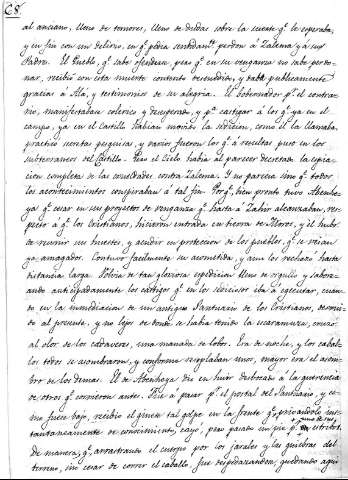 68.
al anciano, lleno de temores, lleno de dudas sobre la suerte q.e le esperaba,
y en fin con un delirio, en q.e pedia perdon a Zulema y a su
Padre. El Pueblo, q.e sabe ofenderse, pero q.e en su venganza no sabe perdo-
nar, recibió con esta muerte contento desmedido, y daba publicamente
gracias á Alá, y testimonios de su alegria. El Gobernador p.r el contra-
rio, manifestaban colerico y desesperado, y p.a castigar á los q.e ya en el
campo, ya en el Castillo habian movido la sedicion, como él la llamaba,
practicó secretas pesquisas, y varios fueron los q.e á resultas puso en los
subterraneos del Castillo. Pero el Cielo habia al parecer decretado la expia-
cion completa de las crueldades contra Zulema. Y no parecia sino q.e todos
los acontecimientos conspiraban á tal fin. Porq.e bien pronto tuvo
ya q.e cesar en sus proyectos de venganza q.e hasta á alcanzaban, res-
pecto á q.e los Cristianos, hicieron entrada en tierra de Moros, y él hubo
de reunir sus huestes, y acudir en proteccion de los pueblos q.e se veian
ya amagados. Contuvo facilmente su acometida, y aun los rechazó hasta
distancia larga. Volvia de tan gloriosa espedicion lleno de orgullo y sabore-
ando anticipadamente los castigos q.e en los sediciosos iba á egecutar, cuan-
do en la inmediacion de un antiguo Santuario de los Cristianos, desier-
to al presente, y no lejos de donde se habia tenido la escaramuza, cruzó
al olor de los cadaveres, una manada de lobos. Era de noche, y los cabal-
los todos se asombraron, y conforme resoplaban unos, mayor era el asom-
bro de los demas. El de dió en huir desbocado á la querencia
de otros q.e corrieron antes. Fué á pasar p.r el portal del Santuario, y co-
mo fuese bajo, recibió el ginete tal golpe en la frente q.e privandolo ins-
tantaneamente de conocimiento, cayó, pero quedando un pie en el estribo
de manera, q.e arrastrando el cuerpo por los jarales y las quiebras del
terreno, sin cesar de correr el caballo, fue despedazandose, quedando aqui